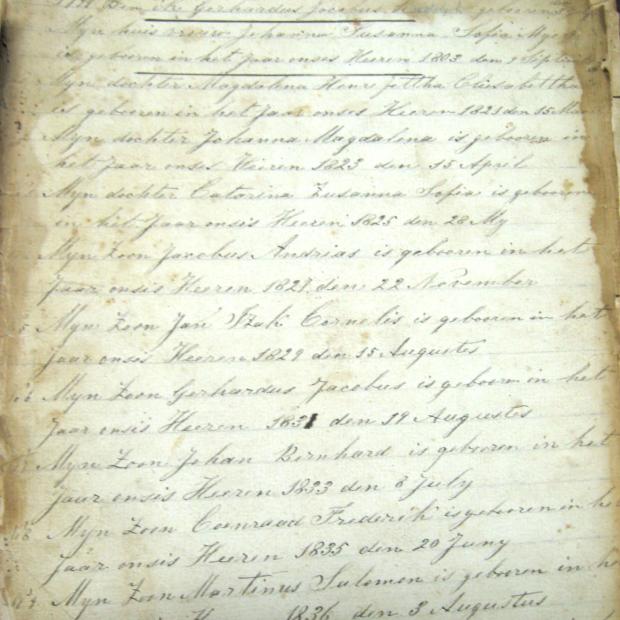 Ben Gerhardus Jacobus geboeren
Myn huis vrouw Johanna Susanna Sofia
is geboeren in het Jaar onses Heeren 1803 den 9 Septem
Myn dochter Magdalena Henrejettha Eliesabettha
is geboeren in het Jaar onses Heeren 1821 den 15
Myn dochter Johanna Magdalena is geboeren in
het Jaar onses Heeren 1823 den 15 April
Myn dochter Catarina Zusanna Sofia is geboeren
in het Jaar onsis Heeren 1825 den 28 My
Myn Zoon Jacobus Andrias is geboeren in het
Jaar onsis Heeren 1827 den 22 November
Myn Zoon Jan Izak Cornelis is geboeren in het
Jaar onsis Heeren 1829 den 15 Augustes
6 Myn Zoon Gerhardus Jacobus is geboern in het
Jaar onsis Heeren 1831 den 19 Augustes
Myn Zoon Johan Bernhard is geboeren in het
Jaar onsis Heeren 1833 den 8 July
8 Myn Zoon Coenraad Frederik is geboeren in he
Jaar onsis Heeren 1835 den 20 Juny
9 Myn Zoon Martinus Salomon is geboren in h
1836 den 3 Augustus